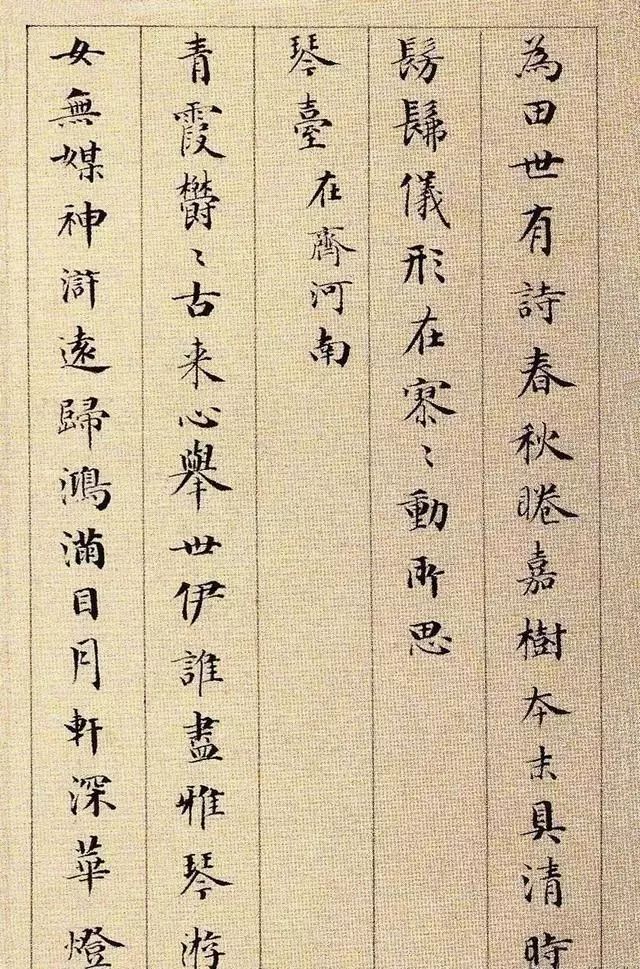 為田世有詩春秋睠嘉樹本末具清時
髣髴儀形在寥〻動所思
琴臺在齊河南
青霞鬱〻古来心舉世伊誰盡雅琴游
女無媒神滸遠歸鴻滿目月軒深華燈